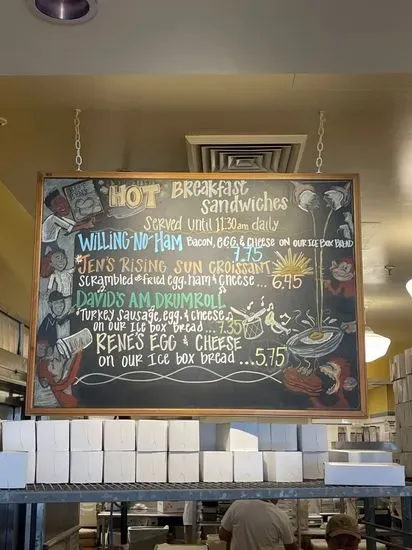 HOT Breakfast
sandwiches
Served until 11:30am daily
Willing-No-Ham Bacon, egg, & cheese on our Ice Box Bread
7.75
Jen's Rising Sun Croissant
scrambled or fried egg, ham & cheese... 6.95
David's A.M. Drumroll
turkey sausage, egg, & cheese
on our Ice box bread... 7.35
Rene's Egg & Cheese
on our Ice box bread... 5.75